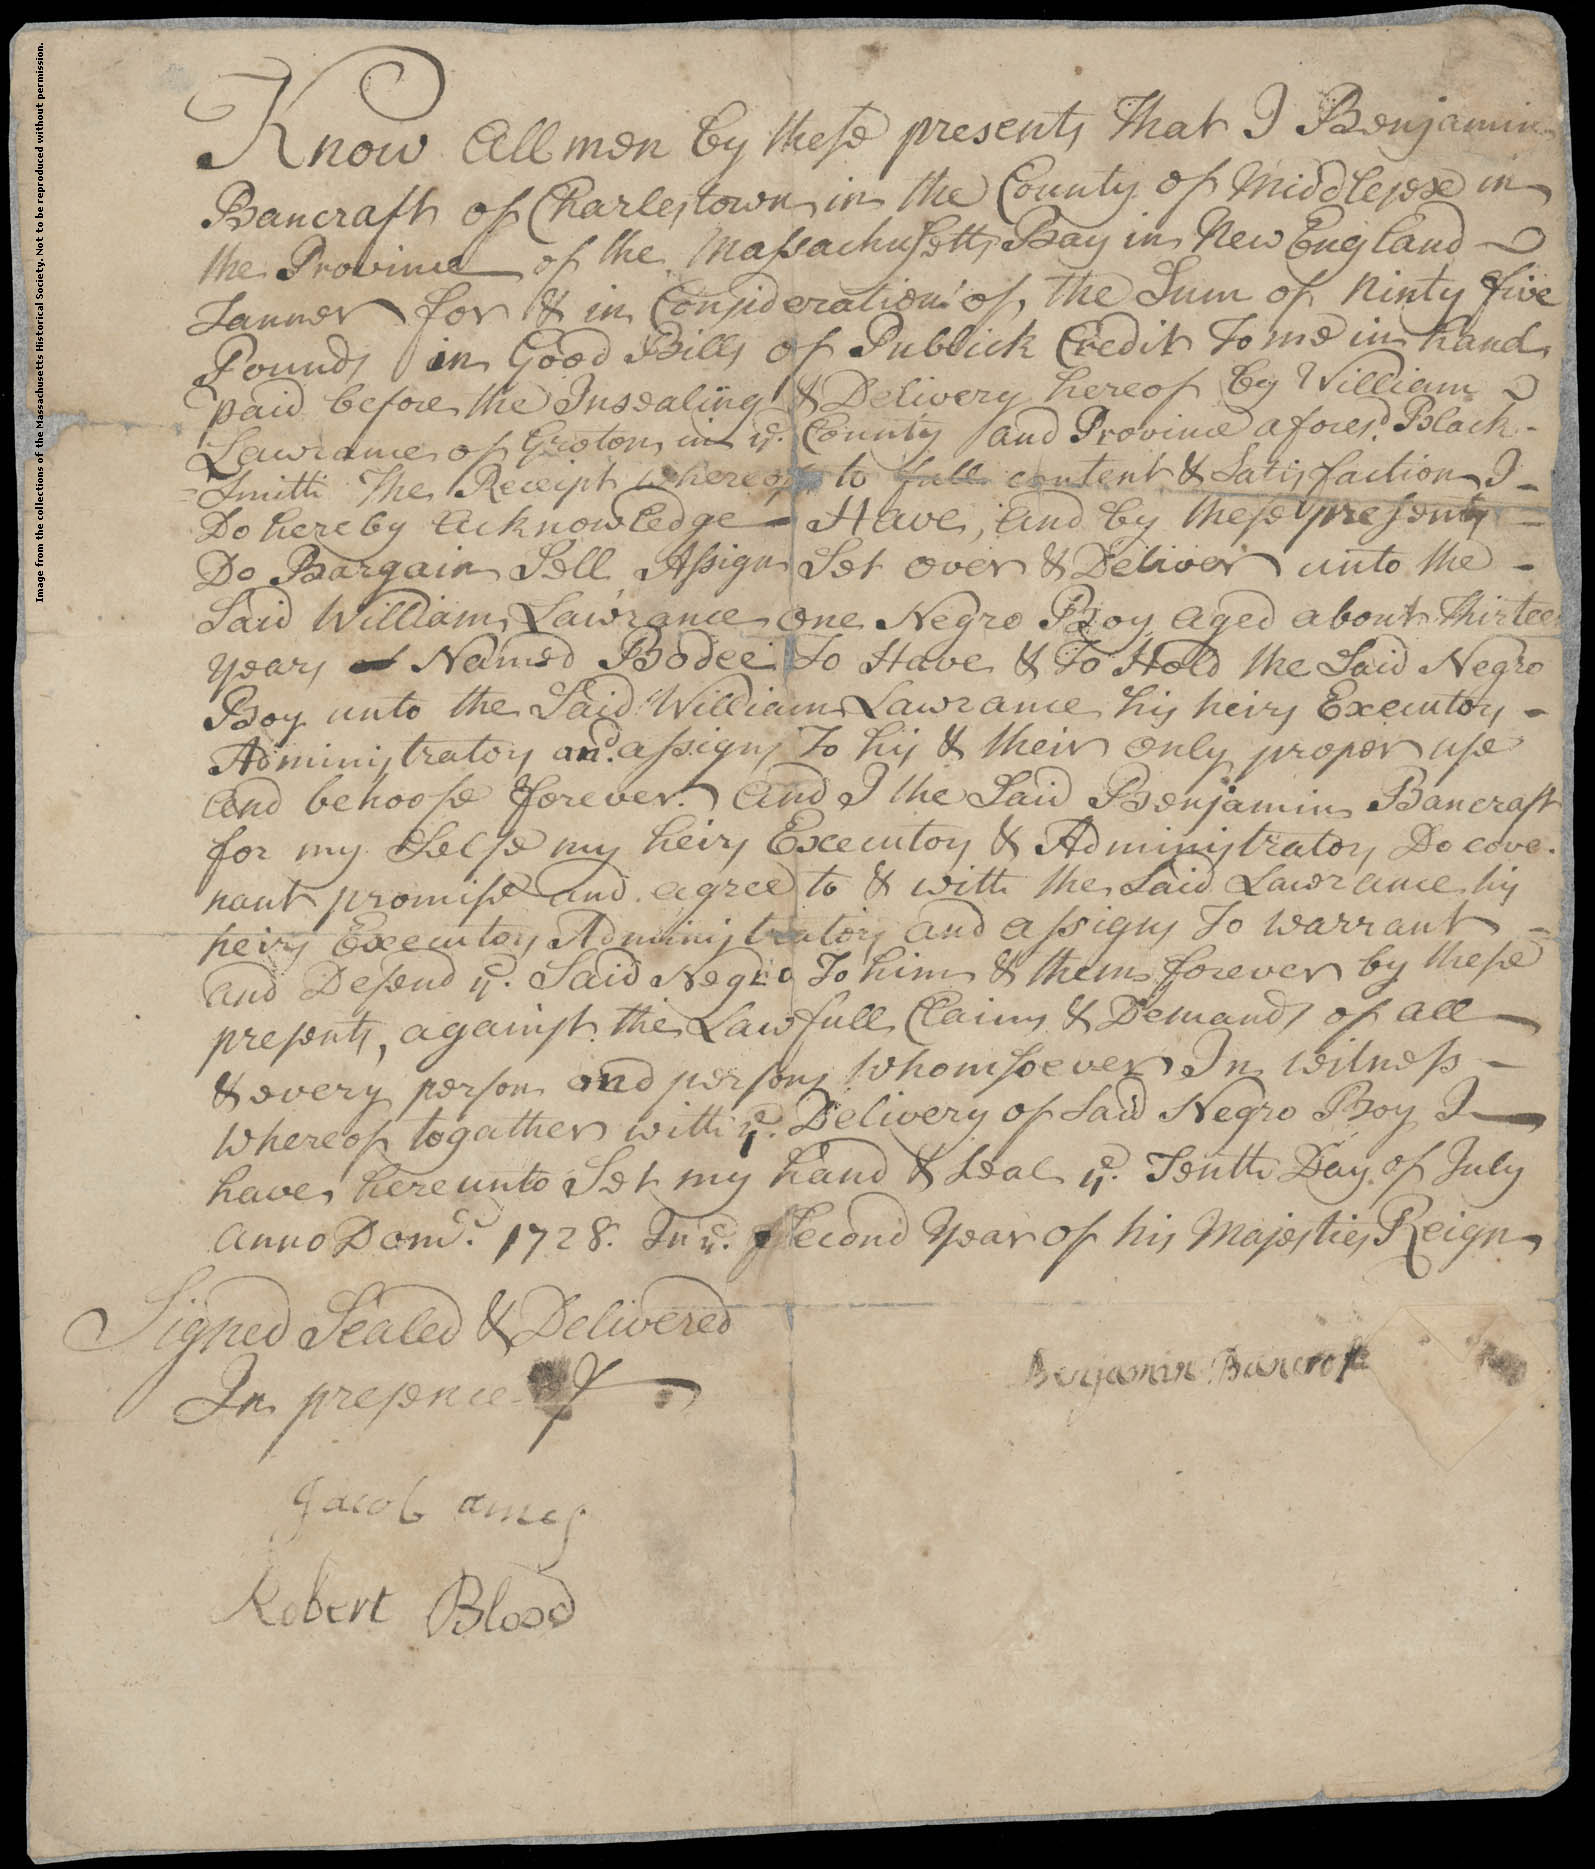 Image from the collections of the Massachusetts Historical Society. Not to be reproduced without permission.
Know all men by these presents That I Benjamin
Bancraft of Charlestown in the County of Middlesex in
the Province of the Massachusetts Bay in New England
Tanner for & in Consideration of, the Sum of Ninty five
Pounds in Good Bills of Publick Credit To me in hand
paid before the Insealing & Delivery hereof by William
Lawrance of Groton in ye. County and Province aforesd. Black-
Smith The Receipt whereof to full content & Satisfaction I
Do hereby acknowledge Have, and by these presents
Do Bargain Sell Assign Set over & Deliver unto the
Said William Lawrance one Negro Boy aged about Thirteen
years Named Bodee To Have & To Hold the Said Negro
Boy unto the Said William Lawrance his heirs Executors
Administrators and assigns To his & their only proper use
and behoofe forever. And I the Said Benjamin Bancraft
for my Selfe my heirs Executors & Administrators Do cove-
nant promise and agree to & with the Said Lawrance his
heirs Executors Administrators and assigns To warrant
and Defend ye. Said Negro To him & them forever by these
presents, against the Lawfull Claims & Demands of all
& every person and persons whomsoever In witness
whereof togather with ye. Delivery of Said Negro Boy I
have hereunto Set my hand & Seal ye. Tenth Day of July
Anno Domi. 1728. In ye. Second Year of his Majesties Reign
Signed Sealed & Delivered
In presence of
Benjamin Bancroft
Jacob ames
Robert Blood